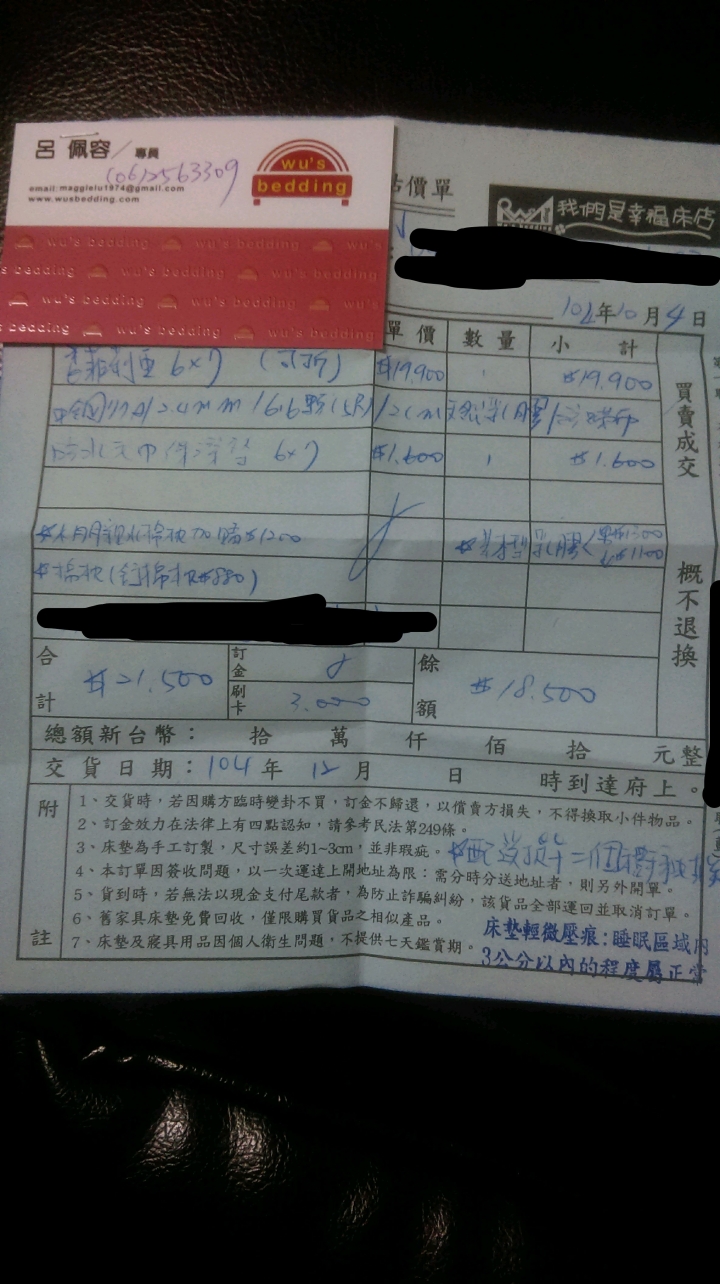 呂佩容/專員
(06)2563309
email:maggielu1974@gmail.com
www.wusbedding.com
wu's bedding
估價單
我們是幸福床店
wu's bedding wu's bedding wu's
wu's bedding wu's bedding
wu's bedding wu's
wu's bedding wu's bedding
年10月4日
單價 數量 小計
6×7 $19.900 1 $19.900
2.4mm
6×7 $1.600 1 $1.600
$1200
買賣成交 概不退換
合計 $21.500
訂金
刷卡 3.000
餘額 $18.500
總額新台幣: 拾 萬 仟 佰 拾 元整
交貨日期:104年12月 日 時到達府上。
附註
1、交貨時,若因購方臨時變卦不買,訂金不歸還,以償賣方損失,不得換取小件物品。
2、訂金效力在法律上有四點認知,請參考民法第249條。
3、床墊為手工訂製,尺寸誤差約1~3cm,並非瑕疵。
4、本訂單因簽收問題,以一次運達上開地址為限:需分時分送地址者,則另外開單。
5、貨到時,若無法以現金支付尾款者,為防止詐騙糾紛,該貨品全部運回並取消訂單。
6、舊家具床墊免費回收,僅限購買貨品之相似產品。
7、床墊及寢具用品因個人衛生問題,不提供七天鑑賞期。
床墊輕微壓痕:睡眠區域內
3公分以內的程度屬正常